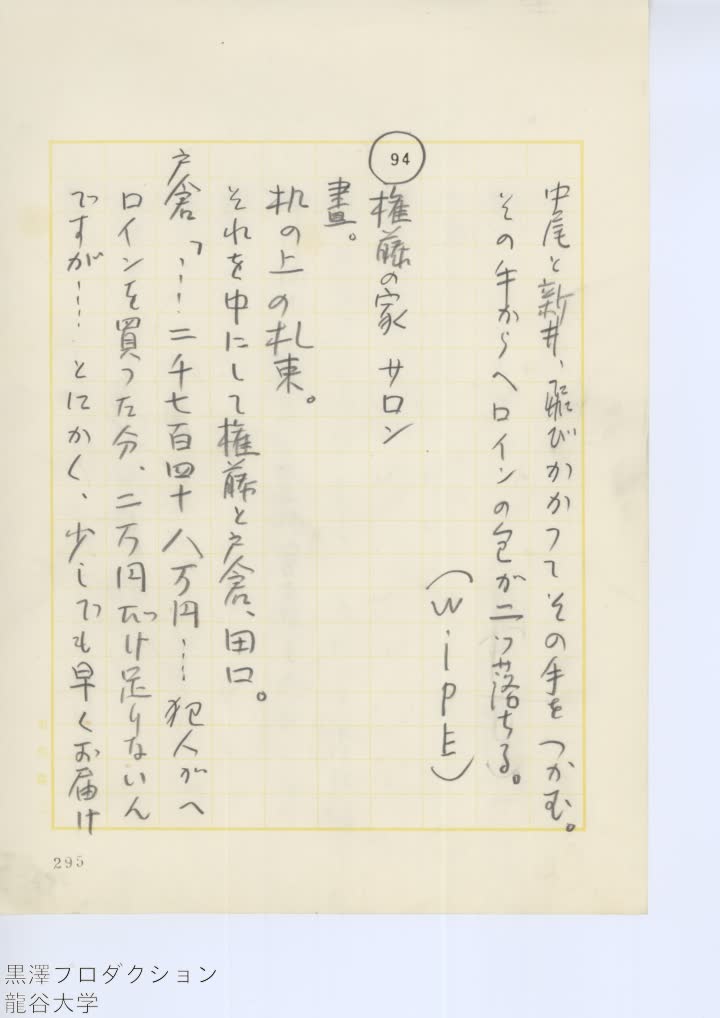 中尾と新井、飛びかかつてその手をつかむ。
その手からヘロインの包が二ツ落ちる。
(WiPE)
94
権藤の家 サロン
晝。
机の上の札束。
それを中にして権藤と戸倉、田口。
戸倉「……二千七百四十八万円……犯人がヘ
ロインを買つた分、二万円だけ足りないん
ですが……とにかく、少しでも早くお届け
295
黒澤プロダクション
龍谷大学